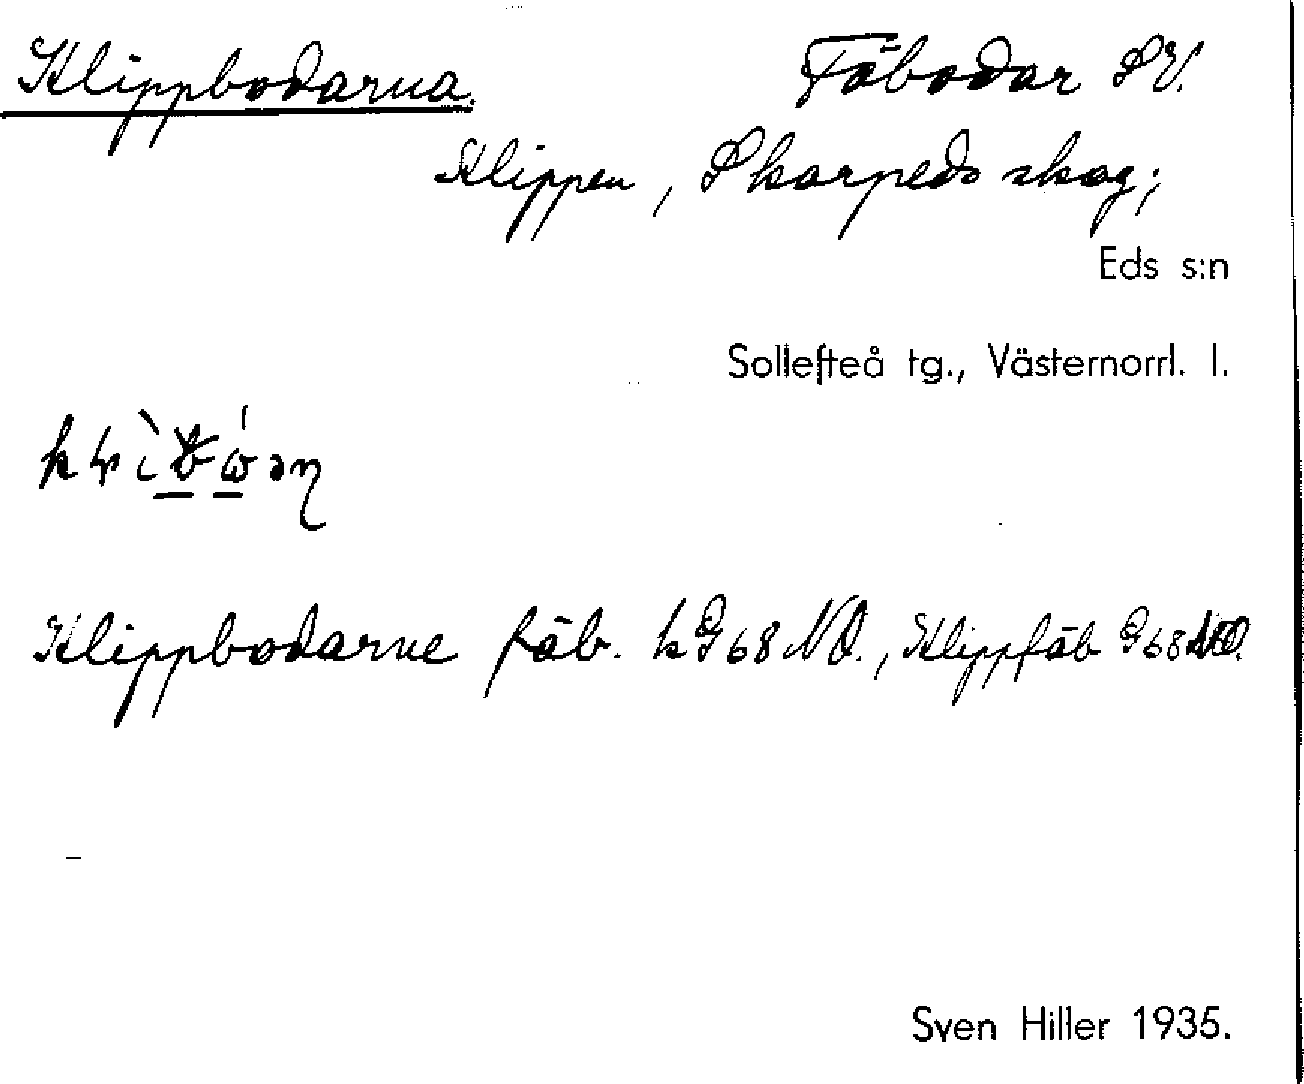 Klippbodarna. Fäbodar SV.
Klippen, Skarpeds skog;
Eds s:n
Sollefteå tg., Västernorrl. l.
Klippbodarne fäb. kG68NO., Klippfäb G68NO.
Sven Hiller 1935.